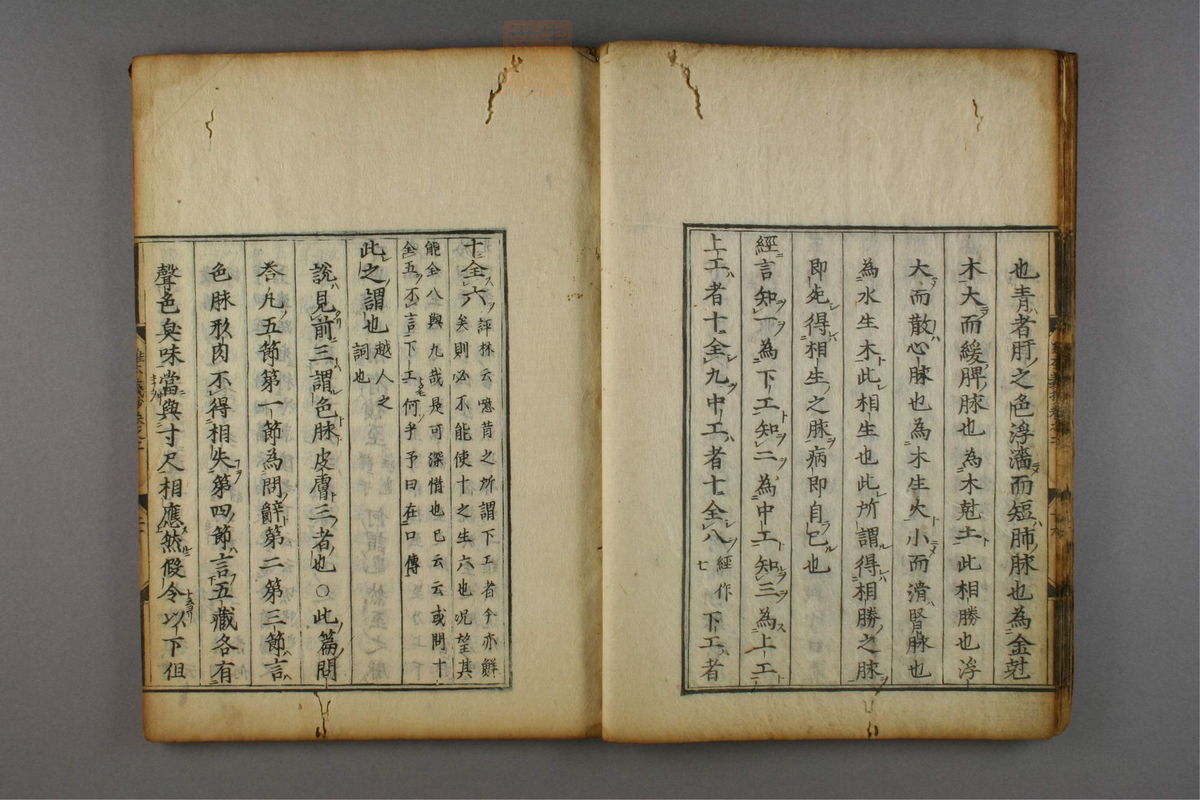 也青者肝之色浮濇而短肺脉也為金尅
木大而緩脾脉也為木尅土此相勝也浮
大而散心脉也為木生火小而滑腎脉也
為水生木此相生也此所謂得相勝之脉
即死得相生之脉病即自已也
經言知一為下工知二為中工知三為上工
上工者十全九中工者十全八經作七下工者
十全六評林云噫昔之所謂下工者今亦鮮
矣則必不能使十之生六也况望其
能全八與九哉是可深惜也已云云或問十
全五不言下工何乎予曰在口傳
此之謂也越人之
詞也
說見前三謂色脉皮膚三者也○此篇問
答凡五節第一節為問辭第二第三節言
色脉形肉不得相失第四節言五藏各有
聲色臭味當與寸尺相應然假令以下但